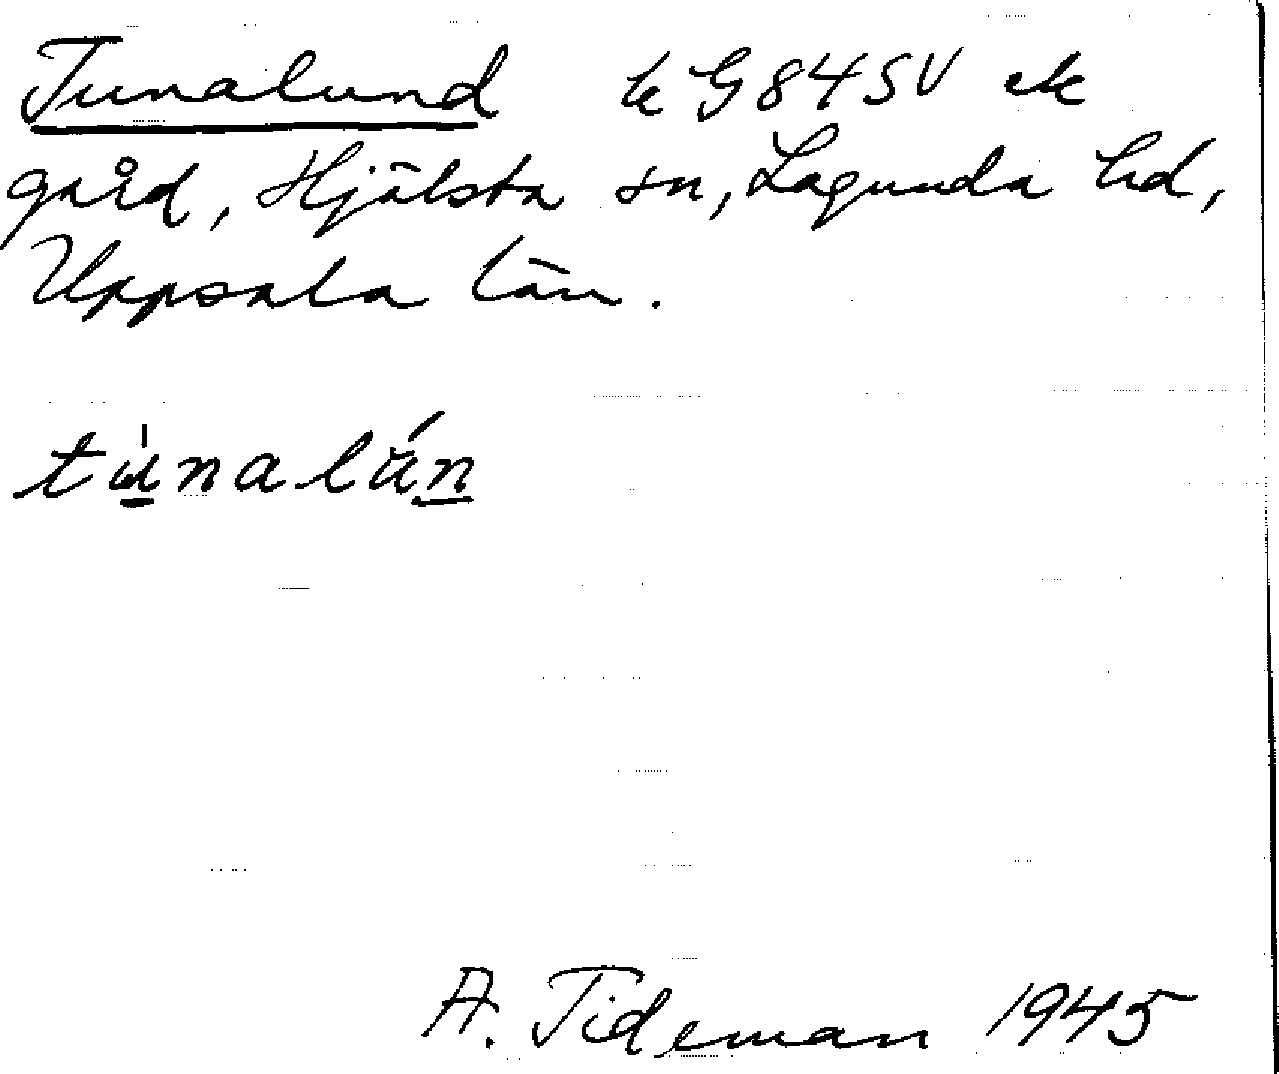 Tunalund k G84SV ek
gård, Hjälsta sn, Lagunda hd,
Uppsala län.
tùnalún
A. Tideman 1945